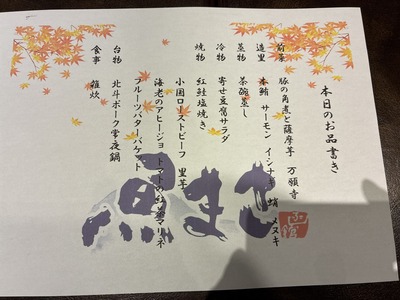 本日のお品書き
前菜 豚の角煮と薩摩芋 万願寺
造里 本鮪 サーモン イシナギ 蛸 メヌキ
蒸物 茶碗蒸し
冷物 寄せ豆腐サラダ
焼物 紅鮭塩焼き
小国ローストビーフ 里芋
海老のアヒージョ トマトの紅茶マリネ
フルーツバターバケット
台物 北斗ポーク常夜鍋
食事 雑炊